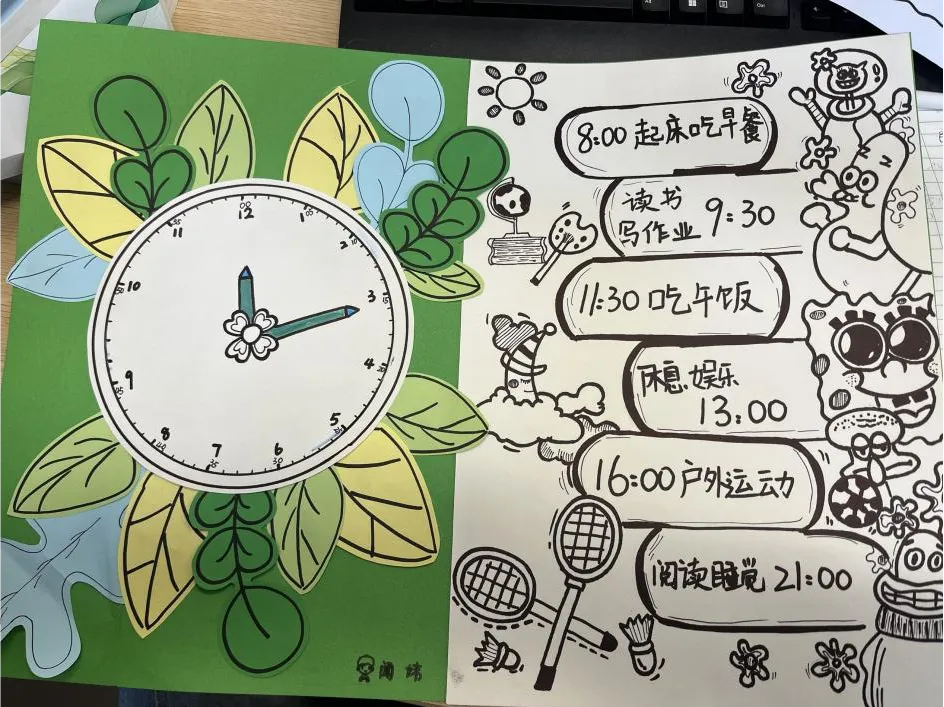 12
1
2
3
4
5
6
7
8
9
10
11
8:00 起床吃早餐
读书
写作业 9:30
11:30 吃午饭
休息娱乐
13:00
16:00 户外运动
阅读睡觉 21:00